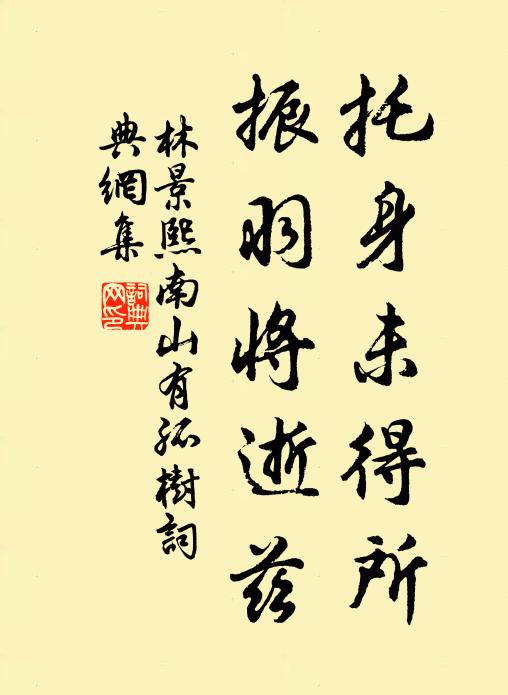 托身未得所
振羽将逝兹
林景熙南山有孤樹詞
典網集
詞典
网印